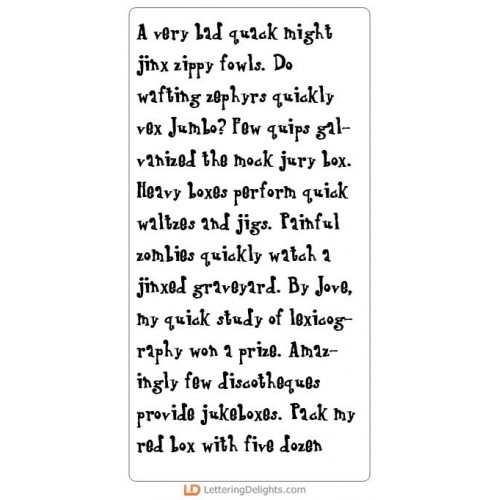 A very bad quack might
jinx zippy fowls. Do
wafting zephyrs quickly
vex Jumbo? Few quips gal-
vanized the mock jury box.
Heavy boxes perform quick
waltzes and jigs. Painful
zombies quickly watch a
jinxed graveyard. By Jove,
my quick study of lexicog-
raphy won a prize. Amaz-
ingly few discotheques
provide jukeboxes. Pack my
red box with five dozen
LD LetteringDelights.com